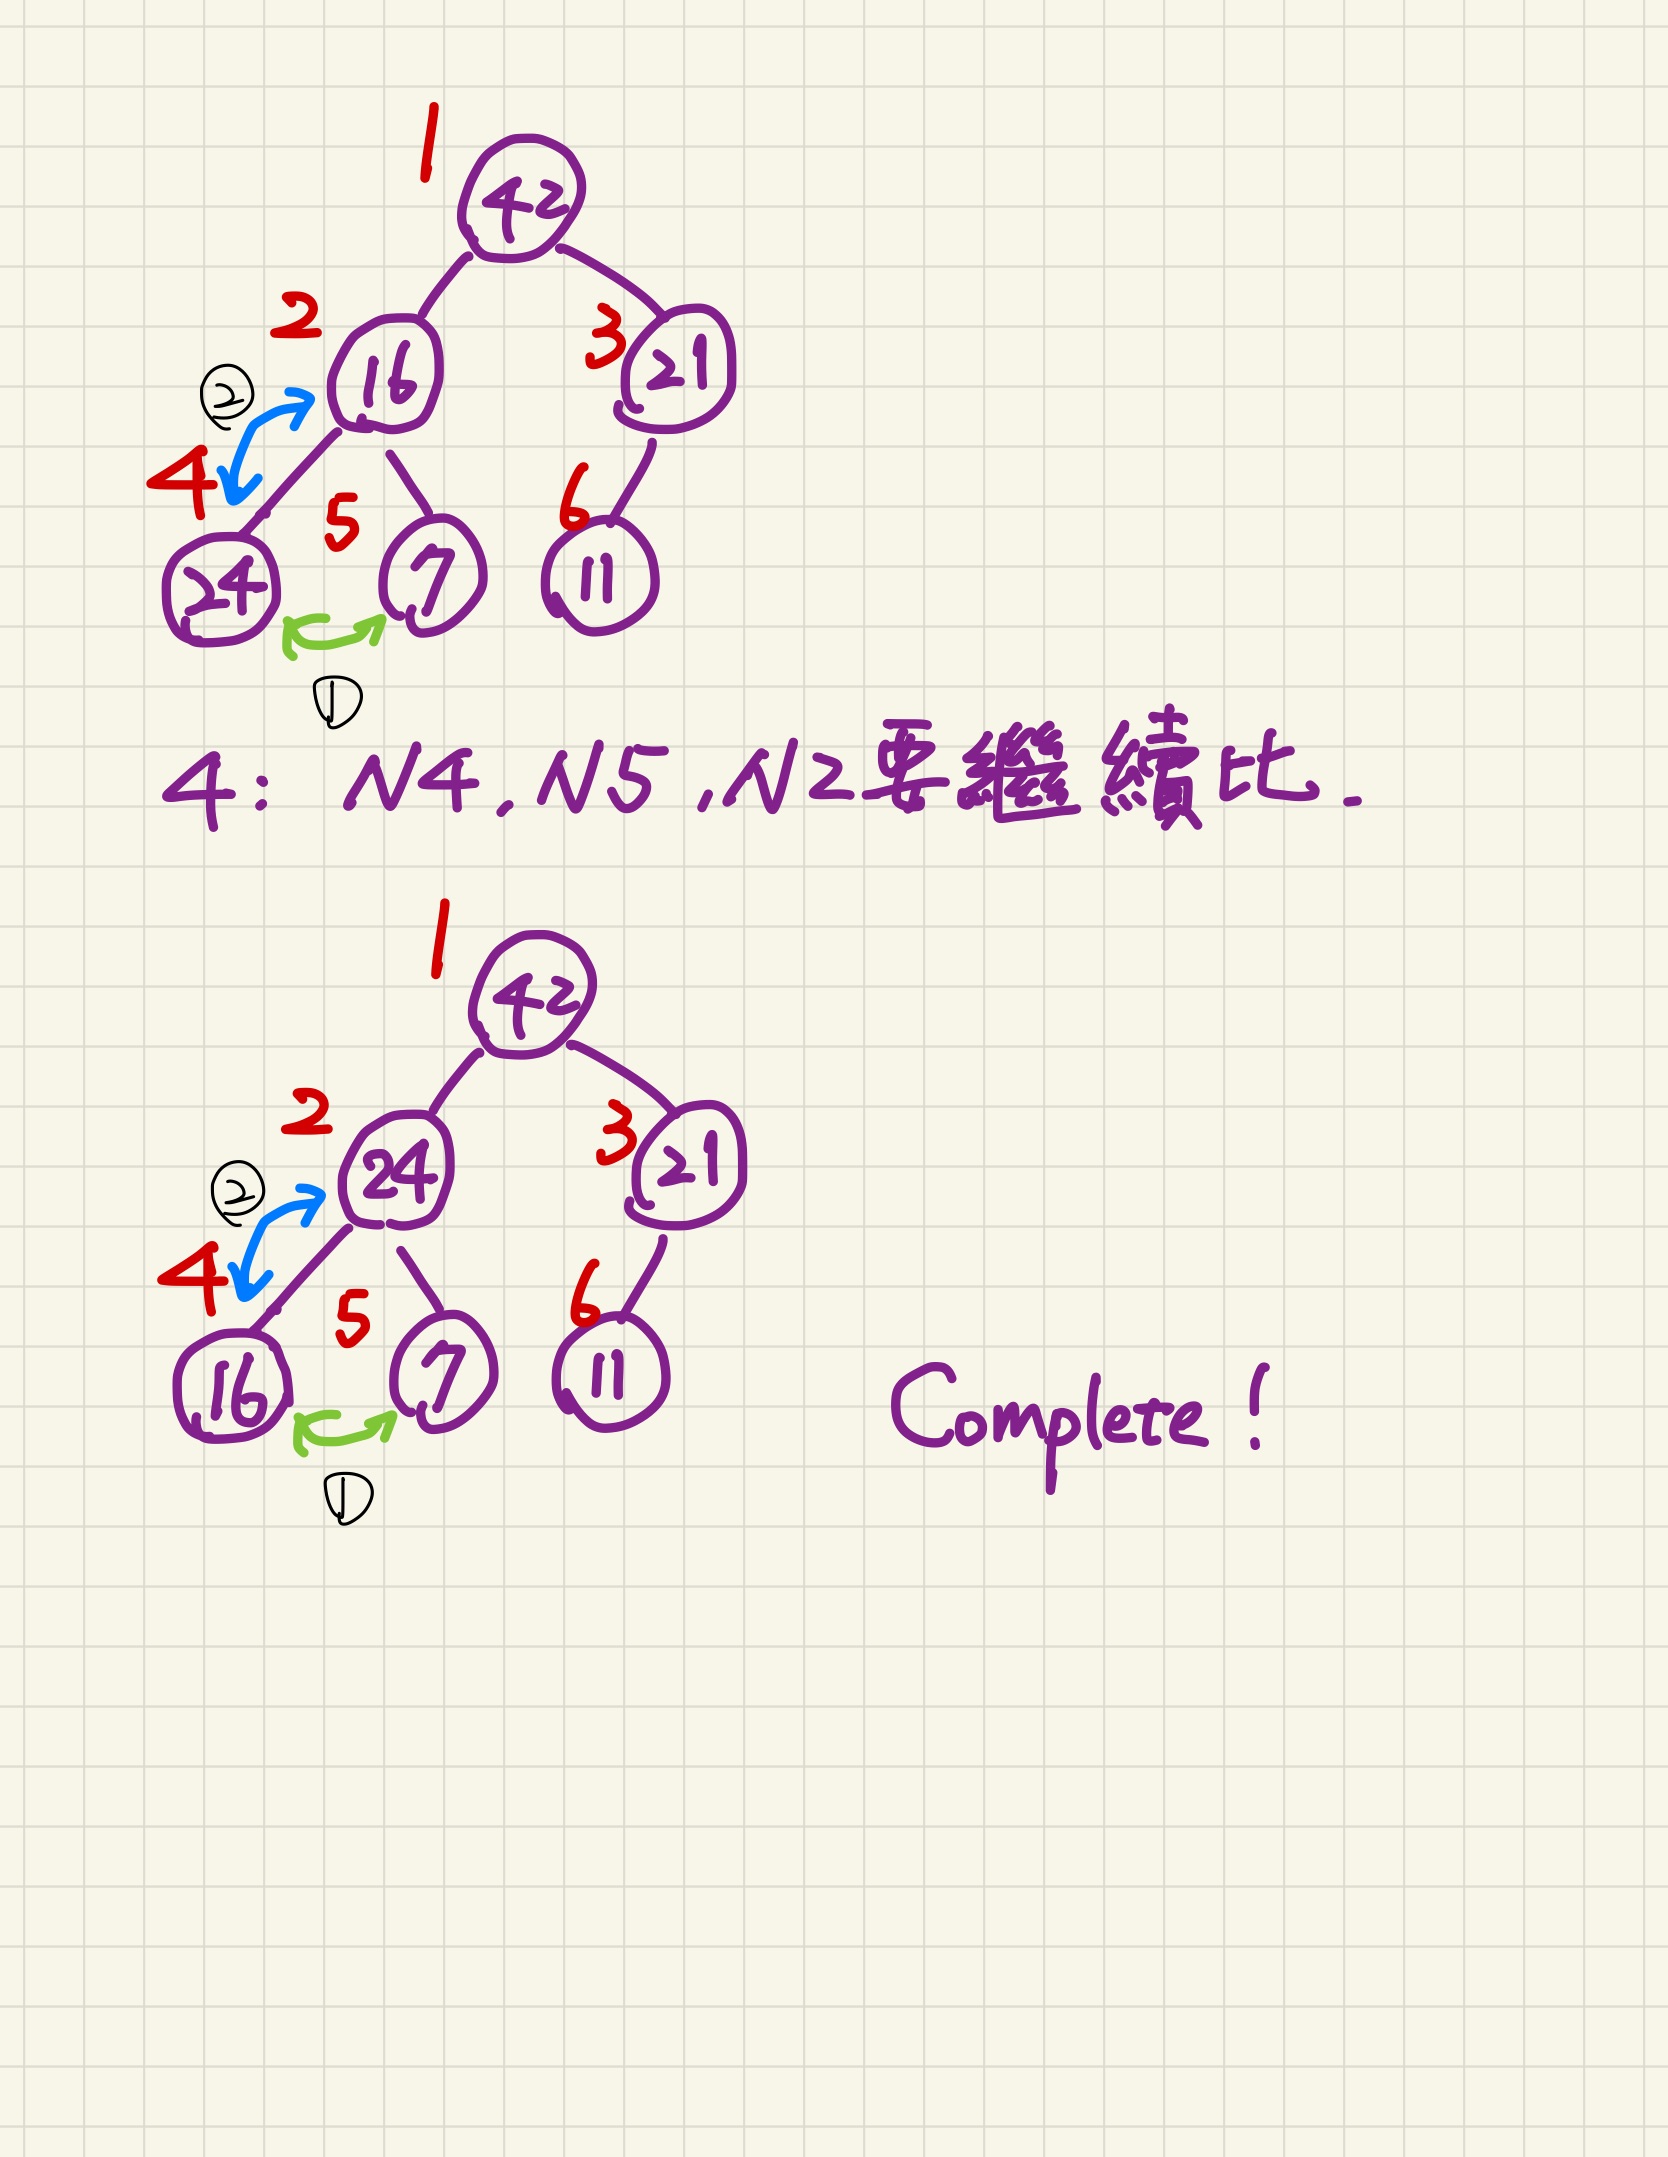 1
42
2
16
3
21
②
4
24
5
7
6
11
①
4: N4, N5, N2要繼續比.
1
42
2
24
3
21
②
4
16
5
7
6
11
①
Complete!